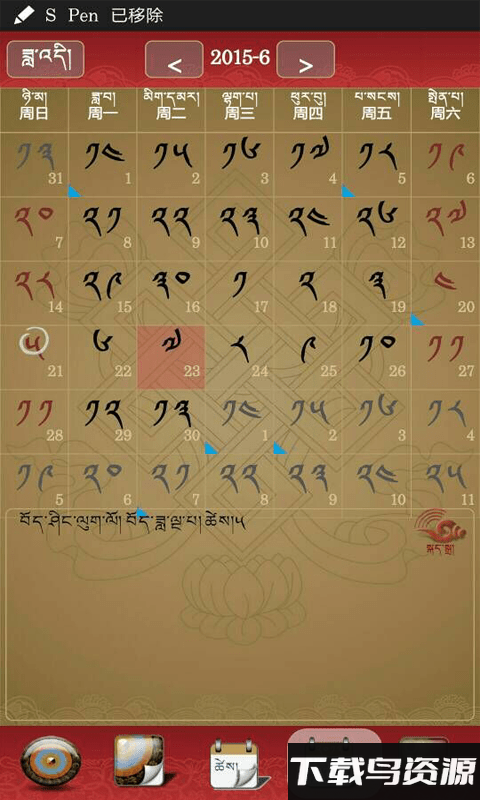 S Pen 已移除
ཟླ་འདི། < 2015-6 >
ཉི་མ། ཟླ་བ། མིག་དམར། ལྷག་པ། ཕུར་བུ། པ་སངས། སྤེན་པ།
周日 周一 周二 周三 周四 周五 周六
༡༣ ༡༤ ༡༥ ༡༦ ༡༧ ༡༨ ༡༩
31 1 2 3 4 5 6
༢༠ ༢༡ ༢༢ ༢༣ ༢༤ ༢༦ ༢༧
7 8 9 10 11 12 13
༢༨ ༢༩ ༣༠ ༡ ༢ ༣ ༤
14 15 16 17 18 19 20
༥ ༦ ༧ ༨ ༩ ༡༠ ༡༡
21 22 23 24 25 26 27
༡༡ ༡༢ ༡༣ ༡༤ ༡༥ ༡༦ ༡༨
28 29 30 1 2 3 4
༡༩ ༢༠ ༢༡ ༢༢ ༢༣ ༢༤ ༢༥
5 6 7 8 9 10 11
བོད་ཤིང་ལུག་ལོ། བོད་ཟླ་ལྔ་པ། ཚེས།༥
下载鸟资源